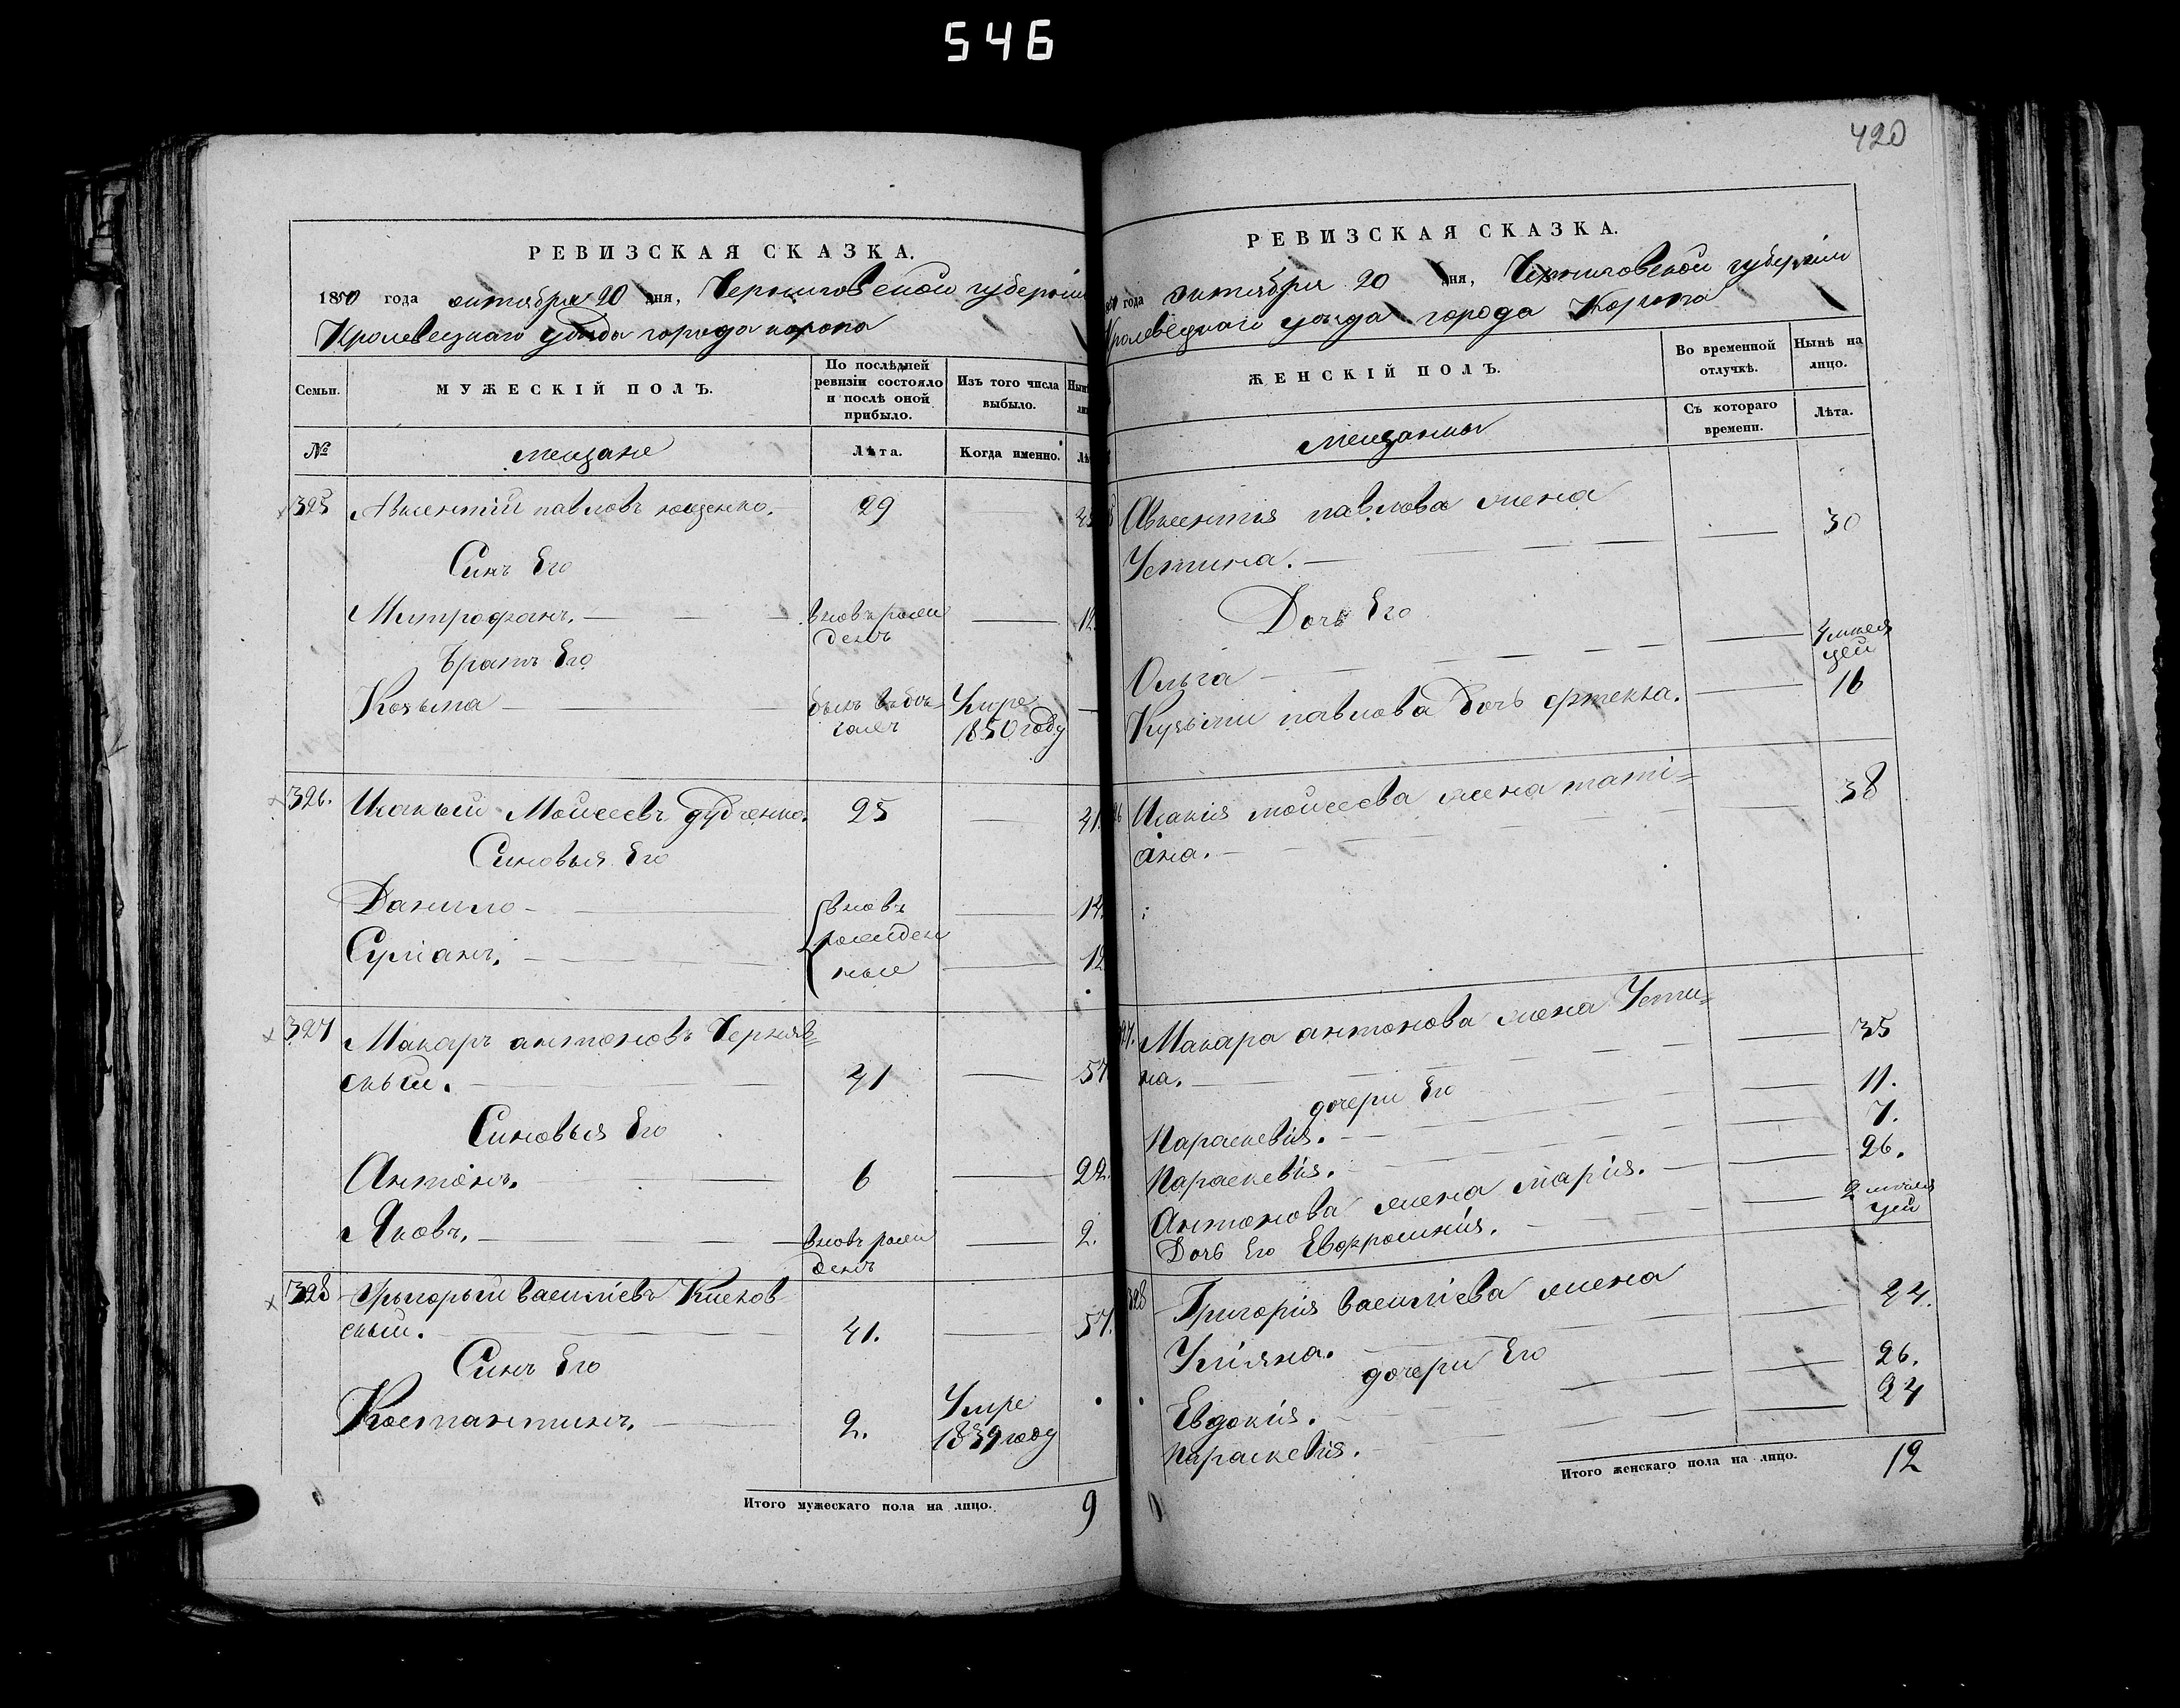 546
420
РЕВИЗСКАЯ СКАЗКА.
1850 года октября 20 дня, Черниговской губерніи
Кролевецкаго уѣзда города коропа
Семьи.
МУЖЕСКІЙ ПОЛЪ.
По послѣдней ревизіи состояло и послѣ оной прибыло.
Изъ того числа выбыло.
№
мещане
Лѣта.
Когда именно.
325 Авксентій павловъ ющенко. 29
Синъ Его
Митрофанъ. вновъ рож 12
денъ
братъ Его
Козьма былъ въ бѣ Умре
гахъ 1850 году
326. Исакый Моисеевъ дудченко. 25 41
Синовья Его
Данило вновъ 14
рожден
Супіанъ. ные 12
327 Макаръ антоновъ Черняв=
скый. 41 57
Синовья Его
Антонъ. 6 22.
Яковъ. вновъ рож 2.
денъ
328 Грыгорый василіевъ Киенов
скый. 41. 57.
Синъ Его
Костантинъ. 2. Умре
1839 году
Итого мужескаго пола на лицо. 9
РЕВИЗСКАЯ СКАЗКА.
года октября 20 дня, Черниговской губерніи
Кролевецкаго уѣзда города Коропа
ЖЕНСКІЙ ПОЛЪ.
Во временной отлучкѣ.
Нынѣ на лицо.
мещанки
Съ котораго времени.
Лѣта.
Авксентія павлова жена
Устина. 30
Дочь Его
Ольга 4 меся
цей
Кузьми павлова дочь фтекла. 16
Исакія моисеева жена тати= 38
яна.
Макара антонова жена Усти=
на. 35
дочери Его
Параскевія. 11.
Параскевія. 7.
Антонова жена марія. 26.
Дочь Его Евфросинія. 2 меся
цей
328 Григорія василіева жена
Уліяна. 44.
дочери Его
Евдокія. 26.
Параскевія. 24
Итого женскаго пола на лицо. 12